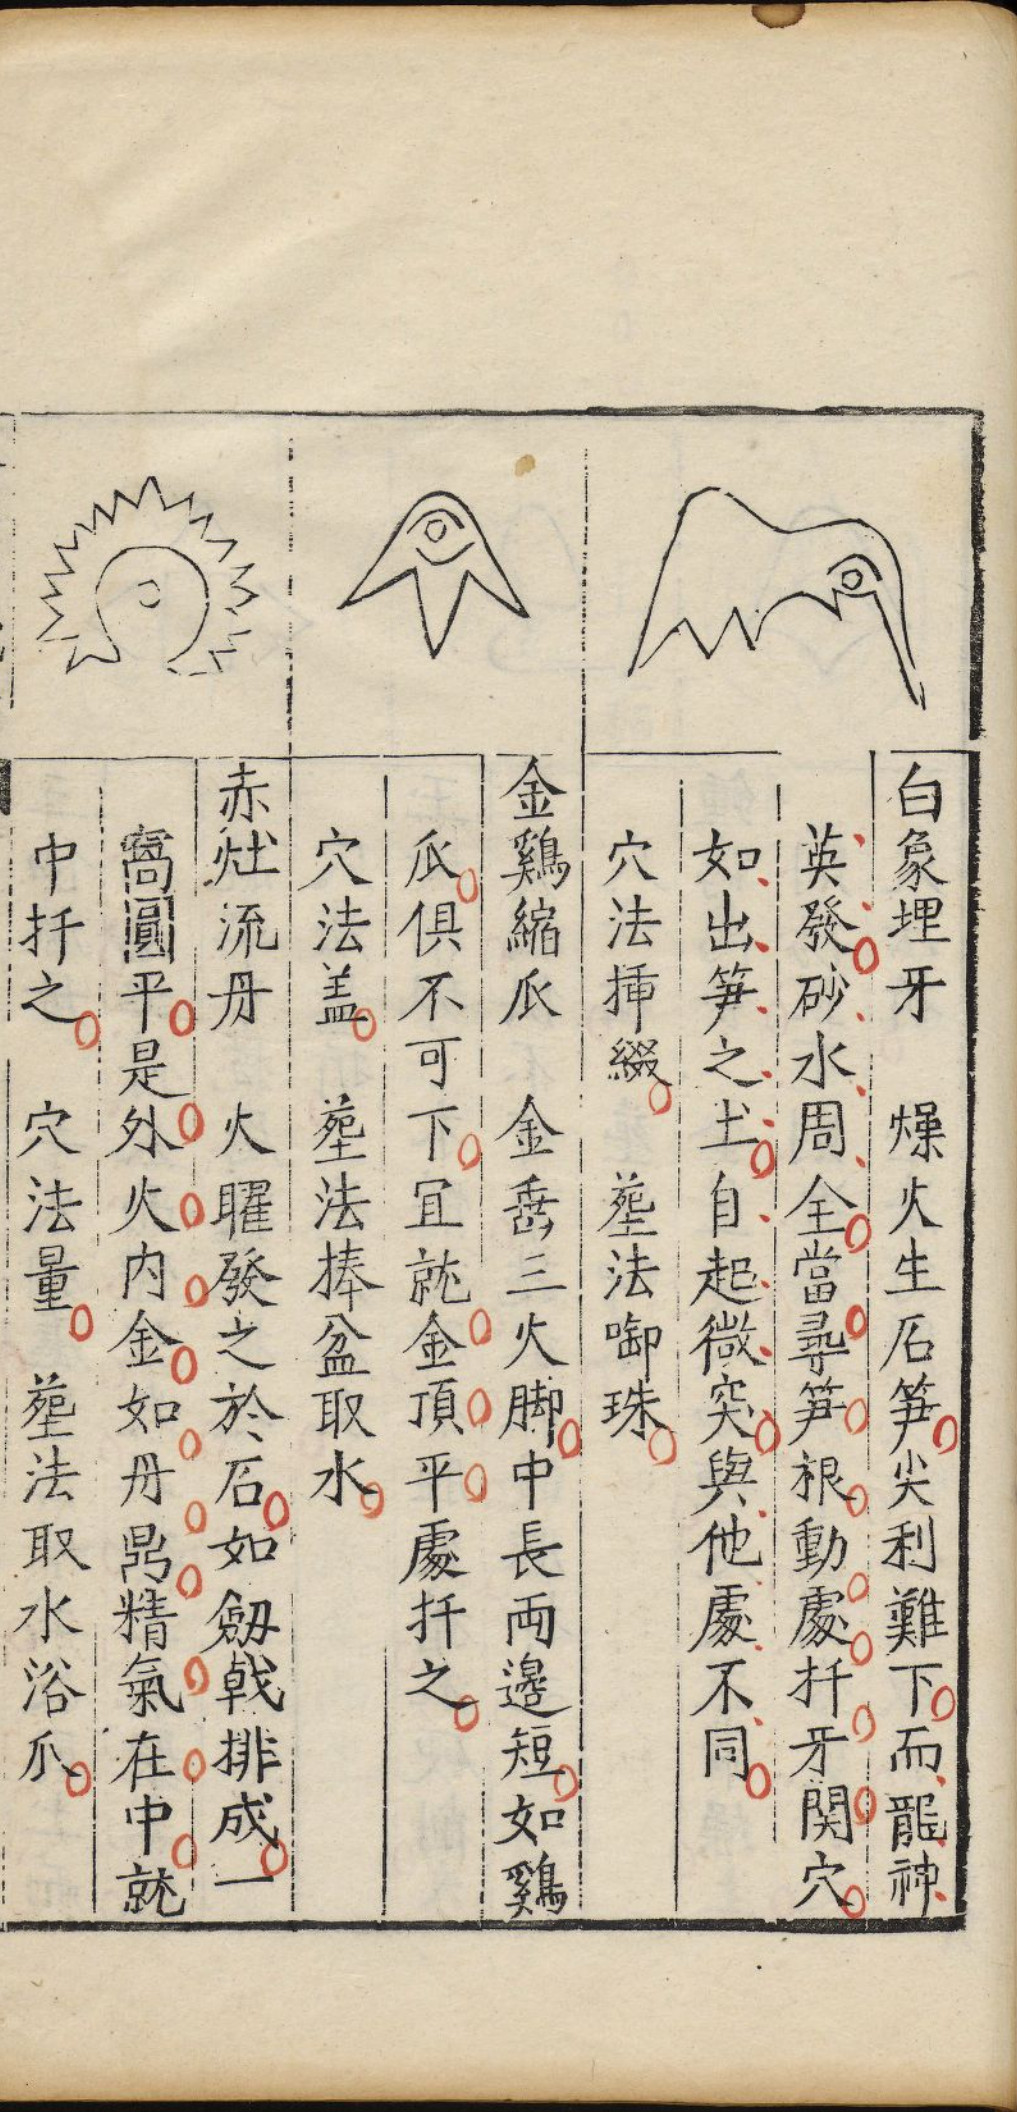 白象埋牙　燥火生石笋尖利難下而龍神
英發砂水周全當尋笋根動處扦牙関穴
如出笋之土自起微突與他處不同
穴法揷綴　塟法啣珠
金鷄縮爪　金嶽三火脚中長両邊短如鷄
爪俱不可下冝就金頂平處扦之
穴法盖　塟法捧盆取水
赤灶流丹　火曜發之於石如劔戟排成一
窩圓平是外火内金如丹鼎精氣在中就
中扦之　穴法量　塟法取水浴爪